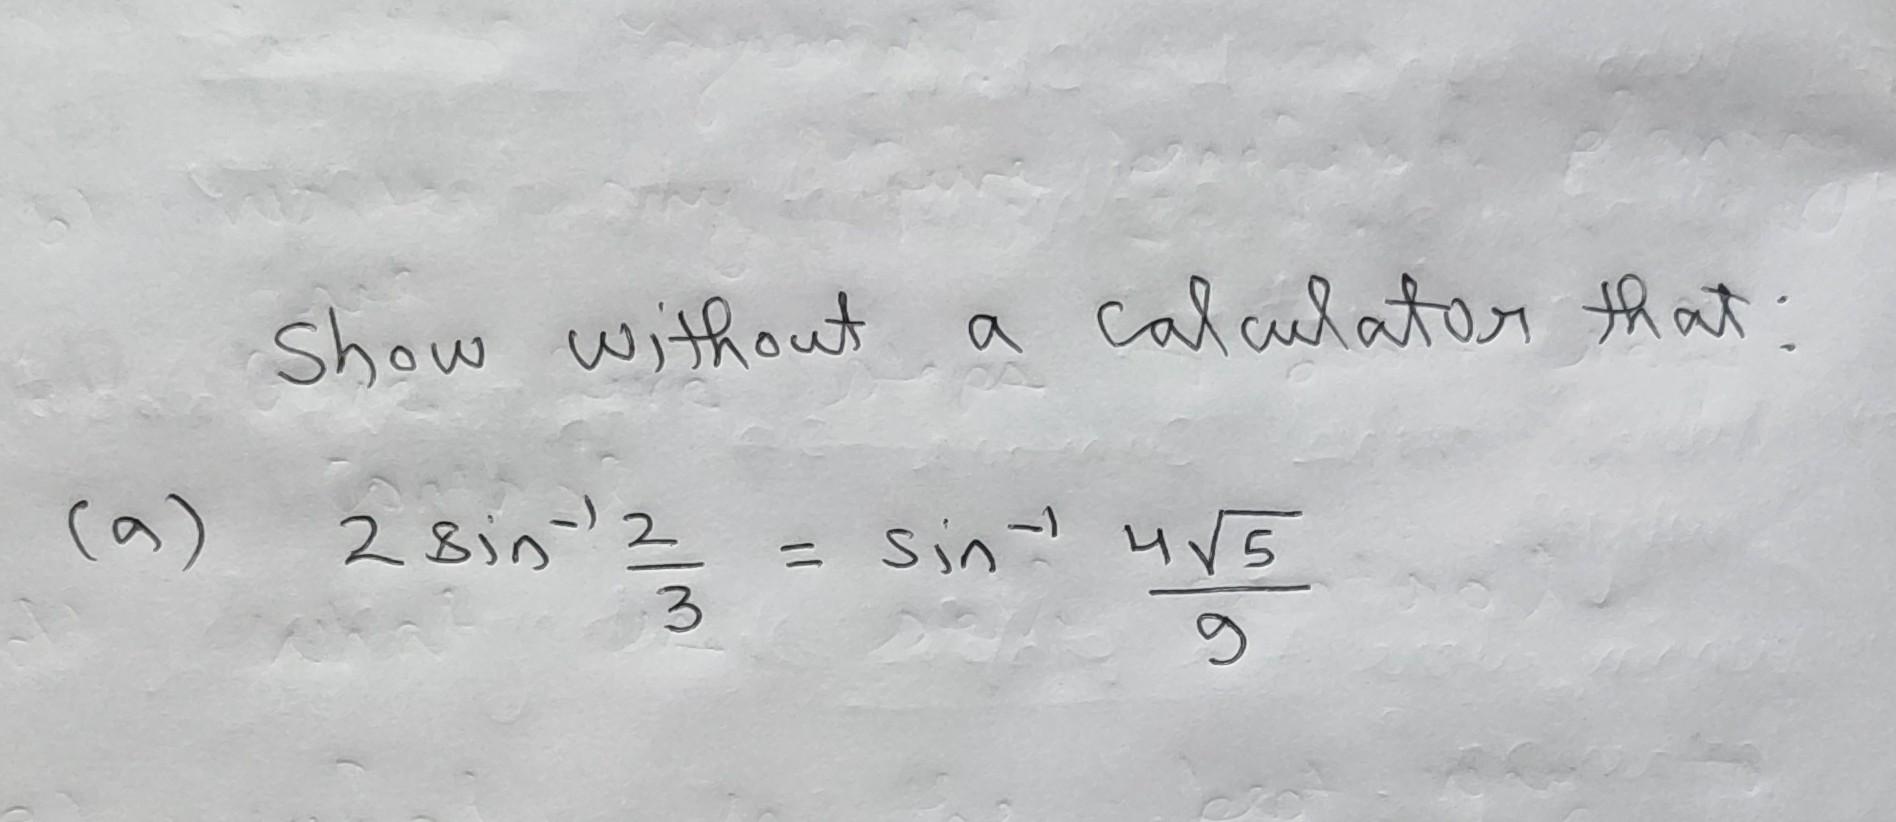 Show without a calculator that:
(a) 2 sin⁻¹ 2/3 = sin⁻¹ 4√5/9